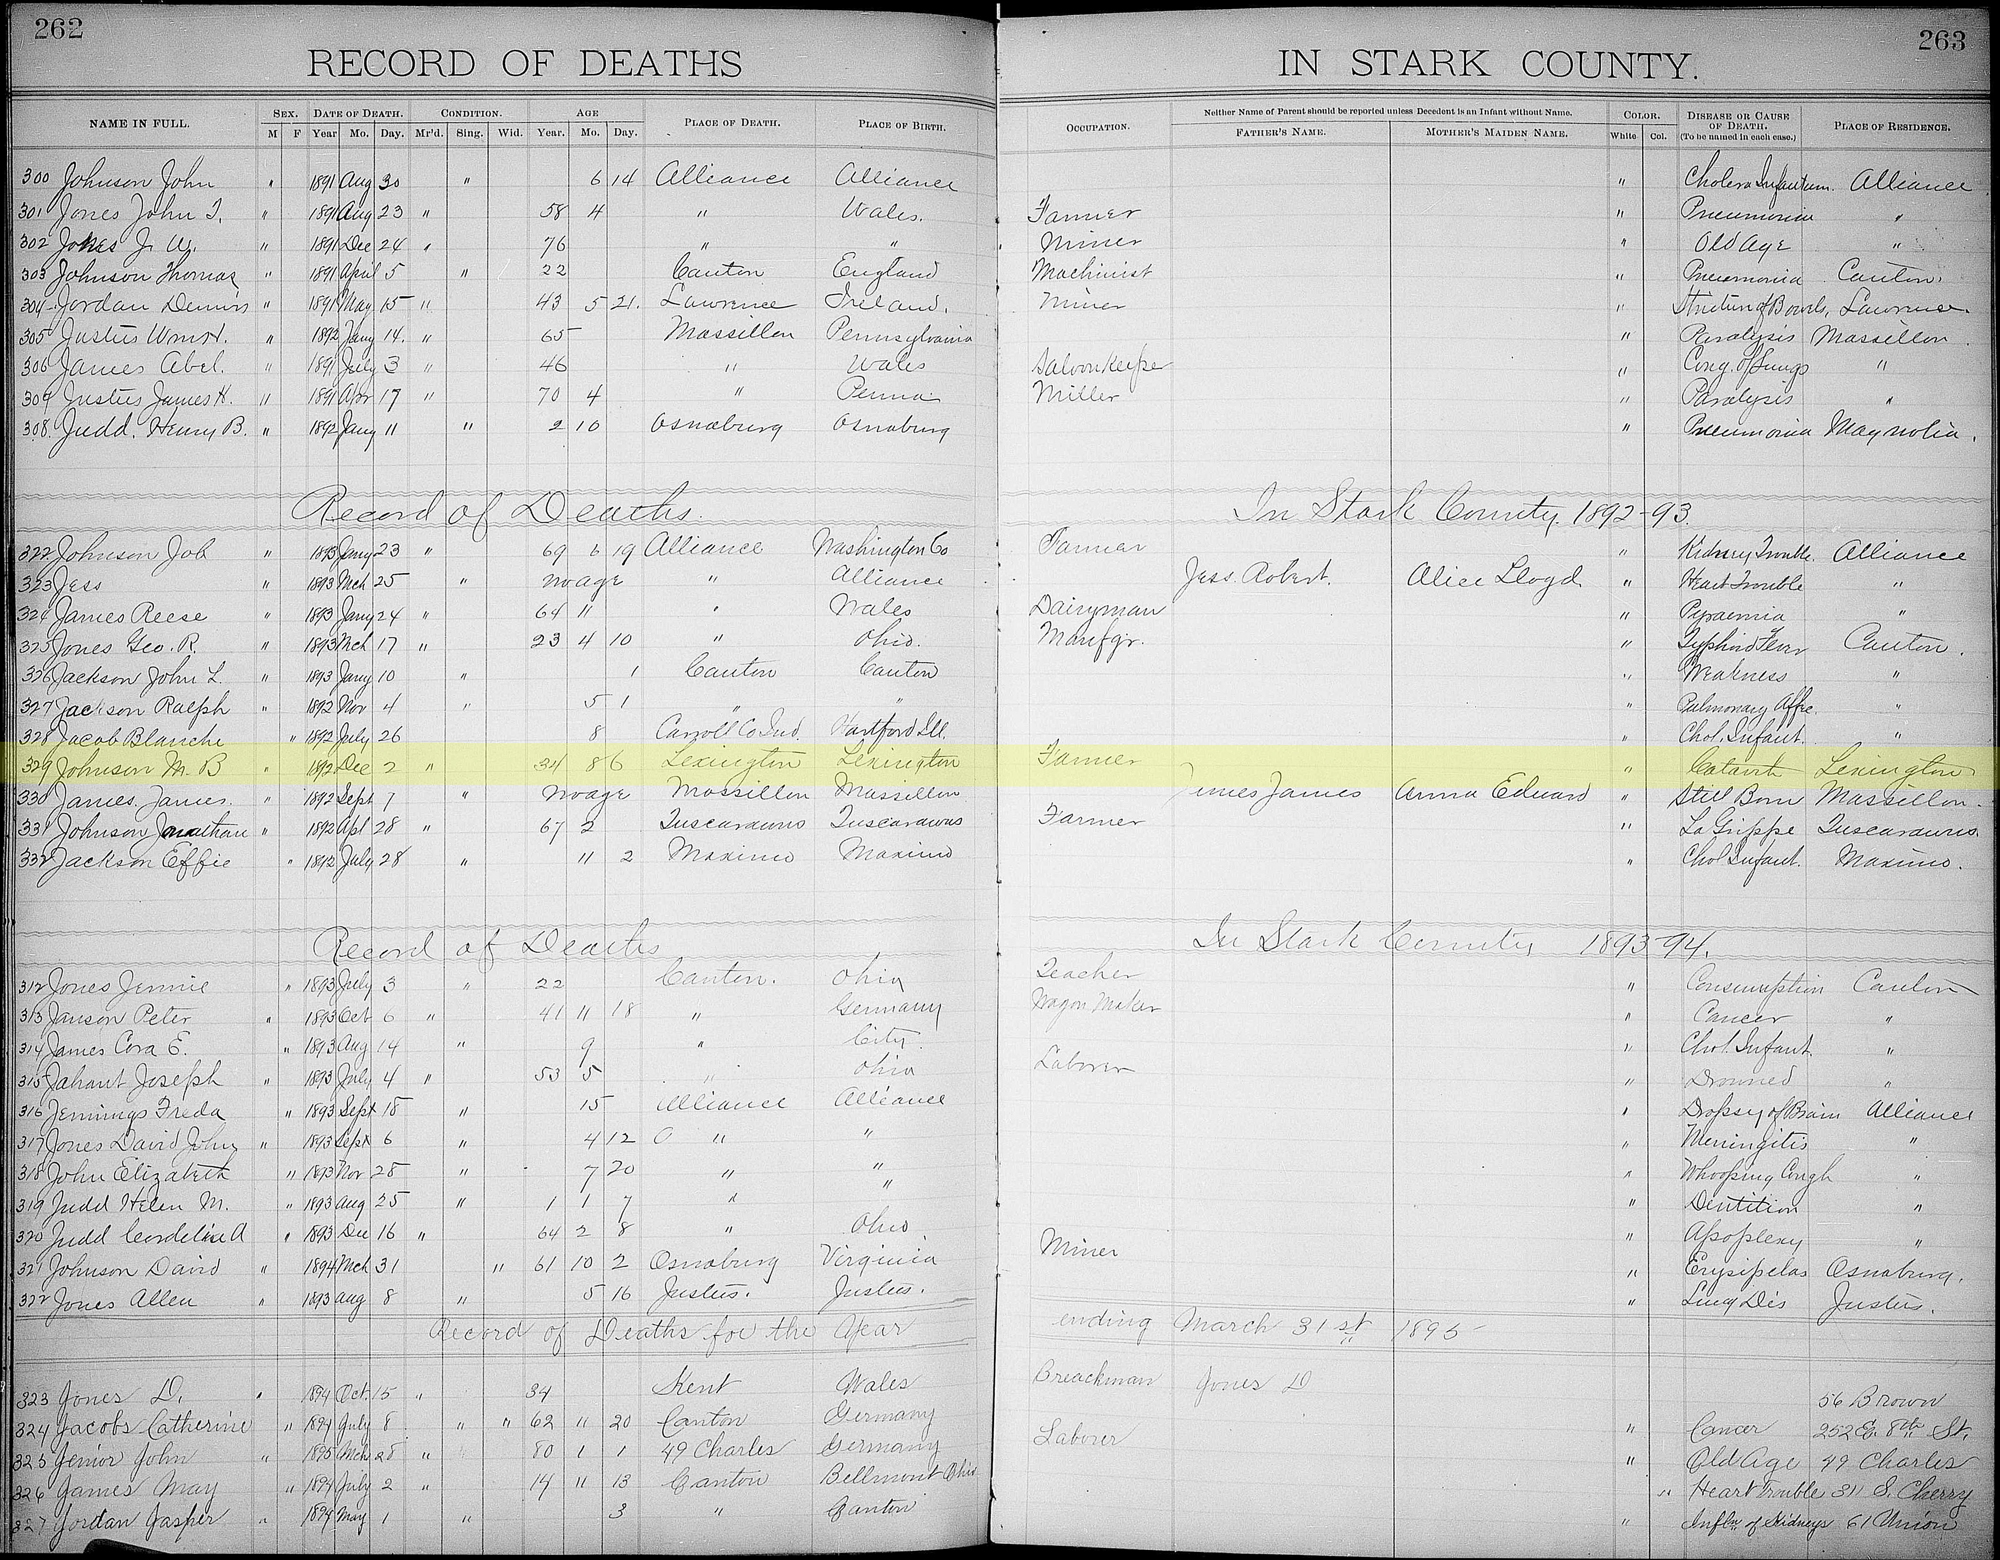 262
RECORD OF DEATHS
IN STARK COUNTY.
263
NAME IN FULL. SEX. DATE OF DEATH. CONDITION. AGE PLACE OF DEATH. PLACE OF BIRTH. OCCUPATION. Neither Name of Parent should be reported unless Decedent is an Infant without Name. COLOR. DISEASE OR CAUSE OF DEATH. (To be named in each case.) PLACE OF RESIDENCE.
M F Year Mo. Day. Mr'd. Sing. Wid. Year. Mo. Day. FATHER'S NAME. MOTHER'S MAIDEN NAME. White Col.
300 Johnson John " 1891 Aug 30 " 6 14 Alliance Alliance " Cholera Infantum. Alliance
301 Jones John T. " 1891 Aug 23 " 58 4 " Wales. Farmer " Pneumonia "
302 Jones J. W. " 1891 Dec 24 " 76 " " Miner " Old Age "
303 Johnson Thomas " 1891 April 5 " 22 Canton England Machinist " Pneumonia Canton.
304 Jordan Dennis " 1891 May 15 " 43 5 21. Lawrence Ireland. Miner " Stricture of Bowels, Lawrence.
305 Justus Wm H. " 1892 Jany 14. " 65 Massillon Pennsylvania " Paralysis Massillon.
306 James Abel. " 1891 July 3 " 46 " Wales Saloon Keeper " Cong. of Lungs "
309 Justus James H. " 1891 Apr 17 " 70 4 " Penna. Miller " Paralysis "
308. Judd. Henry B. " 1892 Jany 11 " 2 10 Osnaburg Osnaburg " Pneumonia Magnolia.
Record of Deaths. In Stark County. 1892-93.
322 Johnson Job " 1893 Jany 23 " 69 6 19 Alliance Washington Co Farmer " Kidney Trouble. Alliance
323 Jess " 1893 Mch 25 " no age " Alliance Jess. Robert. Alice Lloyd " Heart Trouble "
324 James Reese " 1893 Jany 24 " 64 11 " Wales Dairyman " Pyraemia "
325 Jones Geo. R. " 1893 Mch 17 " 23 4 10 " Ohio. Manfgr. " Typhoid Fever Canton.
326 Jackson John L. " 1893 Jany 10 " 1 Canton Canton " Weakness "
327 Jackson Ralph " 1892 Nov 4 " 5 1 " " " Pulmonary Affec. "
328 Jacob Blanche " 1892 July 26 8 Carroll Co Ind. Hartford Ill. " Chol. Infant. "
329 Johnson M. B " 1892 Dec 2 " 34 8 6 Lexington Lexington Farmer " Catarrh Lexington
330 James. James. " 1892 Sept 7 " no age Massillon Massillon James James Anna Edward " Still Born Massillon.
331 Johnson Jonathan " 1892 Apl 28 " 67 2 Tuscarawas Tuscarawas Farmer " La Grippe Tuscarawas
332 Jackson Effie " 1892 July 28 " 11 2 Maximo Maximo " Chol Infant. Maximo.
Record of Deaths In Stark County 1893-94.
312 Jones Jennie " 1893 July 3 " 22 Canton. Ohio Teacher " Consumption Canton
313 Janson Peter " 1893 Oct 6 " 41 11 18 " Germany Wagon Maker " Cancer "
314 James Cora E. " 1893 Aug 14 " 9 " City. " Chol. Infant. "
315 Jahant Joseph " 1893 July 4 " 53 5 " Ohio Laborer " Drowned "
316 Jennings Freda " 1893 Sept 18 " 15 Alliance Alliance " Dropsy of Brain Alliance
317 Jones David John " 1893 Sept 6 " 4 12 " " " Meningitis "
318 John Elizabeth " 1893 Nov 28 " 7 20 " " " Whooping Cough "
319 Judd Helen M. " 1893 Aug 25 " 1 1 7 " " " Dentition "
320 Judd Cordelia A " 1893 Dec 16 " 64 2 8 " Ohio " Apoplexy "
321 Johnson David " 1894 Mch 31 " 61 10 2 Osnaburg Virginia Miner " Erysipelas Osnaburg.
322 Jones Allen " 1893 Aug 8 " 5 16 Justus. Justus. " Lung Dis Justus.
Record of Deaths for the Year ending March 31st 1895
323 Jones D. " 1894 Oct. 15 " 34 Kent Wales Breackman Jones D 56 Brown
324 Jacobs Catherine " 1894 July 8 " " 62 11 20 Canton Germany " Cancer 252 E. 8th St.
325 Jenior John " 1895 Mch 28 " 80 1 1 49 Charles Germany Laborer " Old Age 49 Charles
326 James May " 1894 July 2 " 14 11 13 Canton Bellmont Ohio " Heart trouble 311 S. Cherry
327 Jordan Jasper " 1894 May 1 " 3 " Canton " Inflm of Kidneys 61 Union